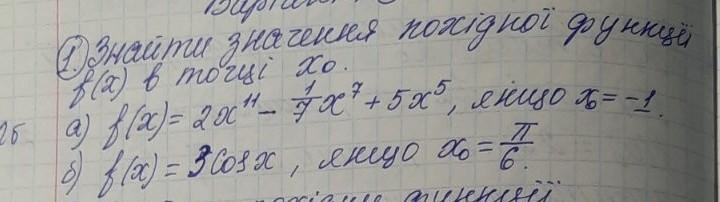 1. Знайти значення похідної функції
f(x) в точці x₀.
а) f(x) = 2x¹¹ − 1/7 x⁷ + 5x⁵, якщо x₀ = −1.
б) f(x) = 3cosx, якщо x₀ = π/6.